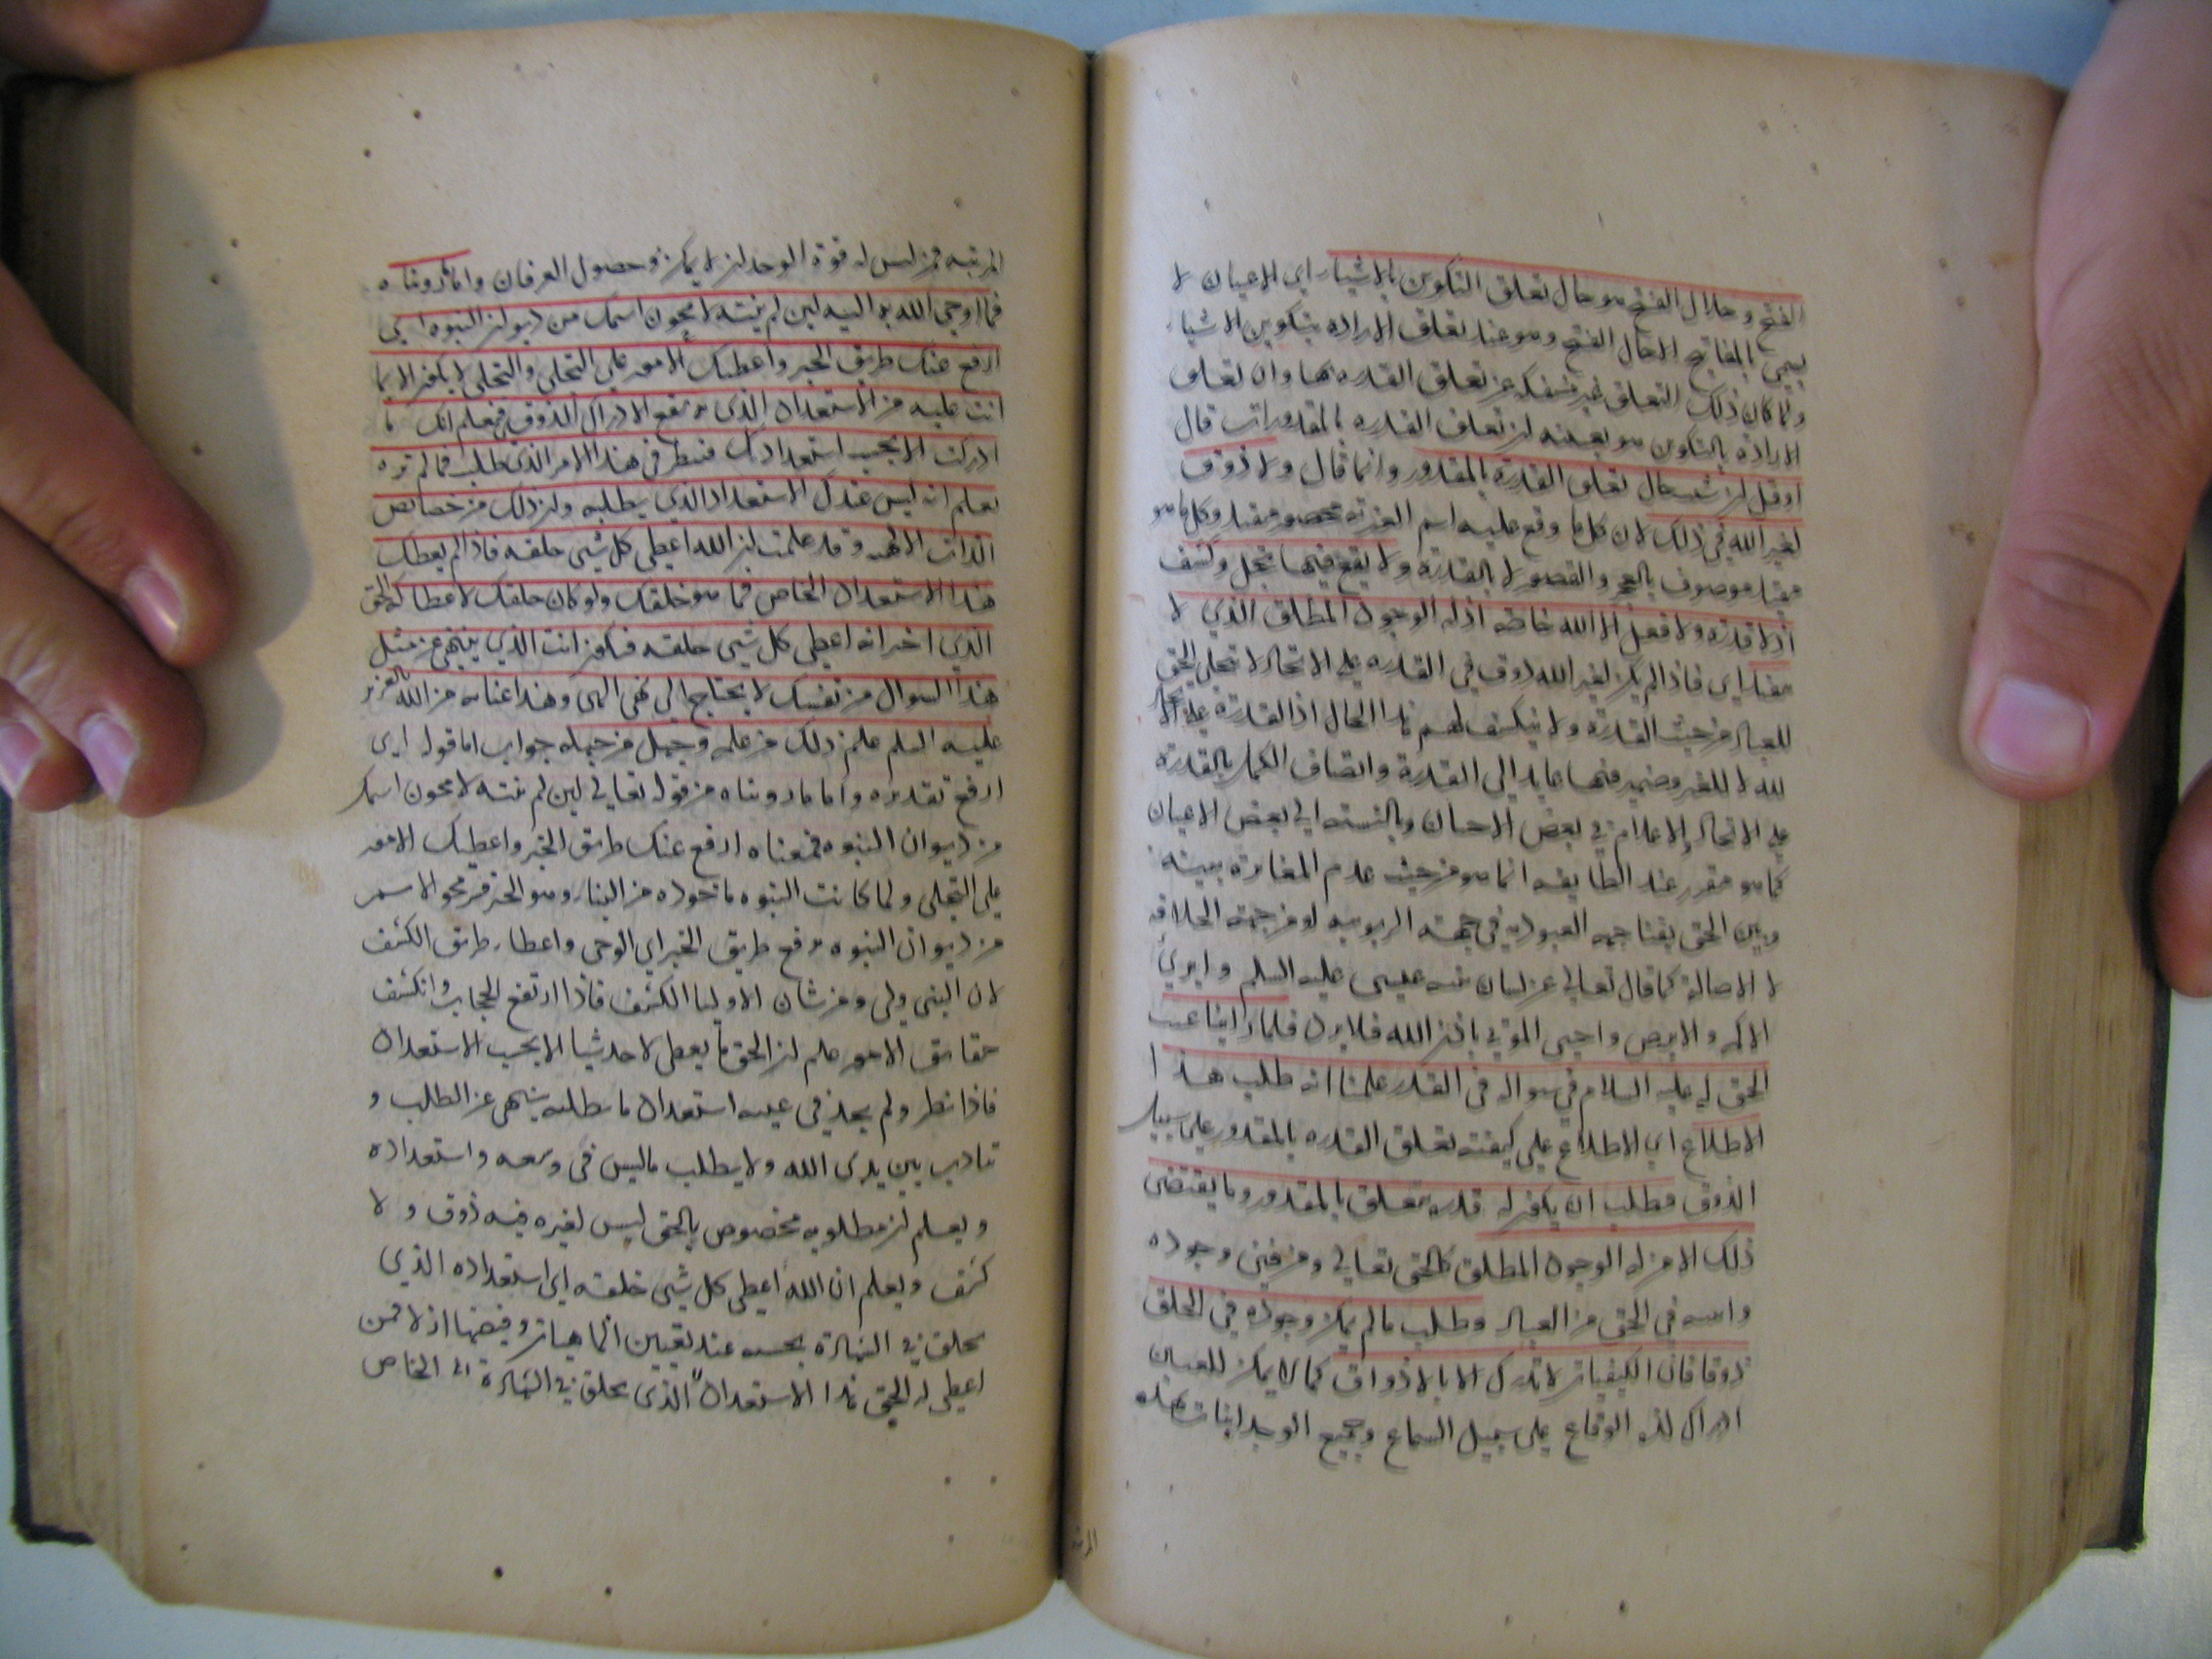 الفتح وحال الفتح هو حال تعلق التكوين بالاشياء اي الاعيان لا
يسمى بالمفاتيح الا حال الفتح وهو عند تعلق الارادة بتكوين الاشياء
ولما كان ذلك التعلق غير منفك عن تعلق القدرة بها وان تعلق
الارادة بالتكوين هو بعينه تعلق القدرة بالمقدورات قال
او قل ان شئت حال تعلق القدرة بالمقدور وانما قال ولا ذوق
لغير الله في ذلك لان كل ما وقع عليه اسم الغيرية فهو مقيد وكل ما هو
مقيد موصوف بالعجز والقصور لا بالقدرة ولا يقع فيها تجل ولا كشف
اذ لا قدرة ولا فعل الا لله خاصة اذ له الوجود المطلق الذي لا
يتقيد اي فاذا لم يكن لغير الله ذوق في القدرة على الايجاد لا تجلى الحق
للعباد من حيث القدرة ولا ينكشف لهم هذا الحال اذ القدرة على الايجاد
لله لا للغير وضمير فيها عايد الى القدرة واتصاف الكمل بالقدرة
على الايجاد والاعدام في بعض الاحيان وبالنسبة الى بعض الاعيان
كما هو مقرر عند الطايفة انما هو من حيث عدم المغايرة بينه
وبين الحق بفناء جهة العبودية في جهة الربوبية او من جهة الخلافة
لا الاصالة كما قال تعالى عن لسان نبيه عيسى عليه السلم وابرئ
الاكمه والابرص واحيي الموتى باذن الله فلا يرد فلما راينا عتب
الحق له عليه السلام في سواله في القدر علمنا انه طلب هذا
الاطلاع اي الاطلاع على كيفية تعلق القدرة بالمقدور على سبيل
الذوق فطلب ان يكون له قدرة تتعلق بالمقدور وما يقتضي
ذلك الا من له الوجود المطلق كالحق تعالى ومن فني وجوده
في الحق من العباد وطلب ما لم يمكن وجوده في الخلق
ذوقا فان الكيفيات لا تدرك الا بالاذواق كما لا يمكن للعنين
ادراك لذة الوقاع على سبيل السماع وجميع الوجدانيات بهذه
المرتبة
المرتبة فمن ليس له قوة الوجدان لا يمكن حصول العرفان واما ما رويناه
فما اوحى الله به اليه لين لم تنته لامحون اسمك من ديوان النبوة اي
ارفع عنك طريق الخبر واعطيك الامور على التجلي والتجلي لا يكون الا بما
انت عليه من الاستعداد الذي به يقع الادراك الذوقي فتعلم انك ما
ادركت الا بحسب استعدادك فتنظر في هذا الامر الذي طلبت فما لم تره
تعلم انه ليس عندك الاستعداد الذي يطلبه وان ذلك من خصايص
الذات الالهية وقد علمت ان الله اعطى كل شي خلقه فاذا لم يعطك
هذا الاستعداد الخاص فما هو خلقك ولو كان خلقك لاعطاكه الحق
الذي اخبر انه اعطى كل شي خلقه فتكون انت الذي ينتهي عن مثل
هذا السوال من نفسك لا يحتاج الى نهي الهي وهذا عناية من الله بالعزير
عليه السلم علم ذلك من علمه وجهل من جهله جواب اما قوله اي
ارفع تقديره واما ما رويناه من قوله تعالى لين لم تنته لامحون اسمك
من ديوان النبوة فمعناه ارفع عنك طريق الخبر واعطيك الامور
على التجلي ولما كانت النبوة ماخوذة من النباء وهو الخبر محو الاسم
من ديوان النبوة برفع طريق الخبر اي الوحي واعطاء طريق الكشف
لان النبي ولي ومن شان الاوليا الكشف فاذا ارتفع الحجاب وانكشف
حقايق الامور علم ان الحق ما يعطي لاحد شيا الا بحسب الاستعداد
فاذا نظر ولم يجد في عينه استعداد ما يطلبه ينتهي عن الطلب و
تادب بين يدي الله ولا يطلب ما ليس في وسعه واستعداده
ويعلم ان مطلوبه مخصوص بالحق ليس لغيره فيه ذوق ولا
كشف ويعلم ان الله اعطى كل شي خلقه اي استعداده الذي
يخلق في الشهادة بحسبه عند تعيين الماهيات وفيضها اذلا فمن
اعطى له الحق هذا الاستعداد الذي يخلق في الشهادة الخاص